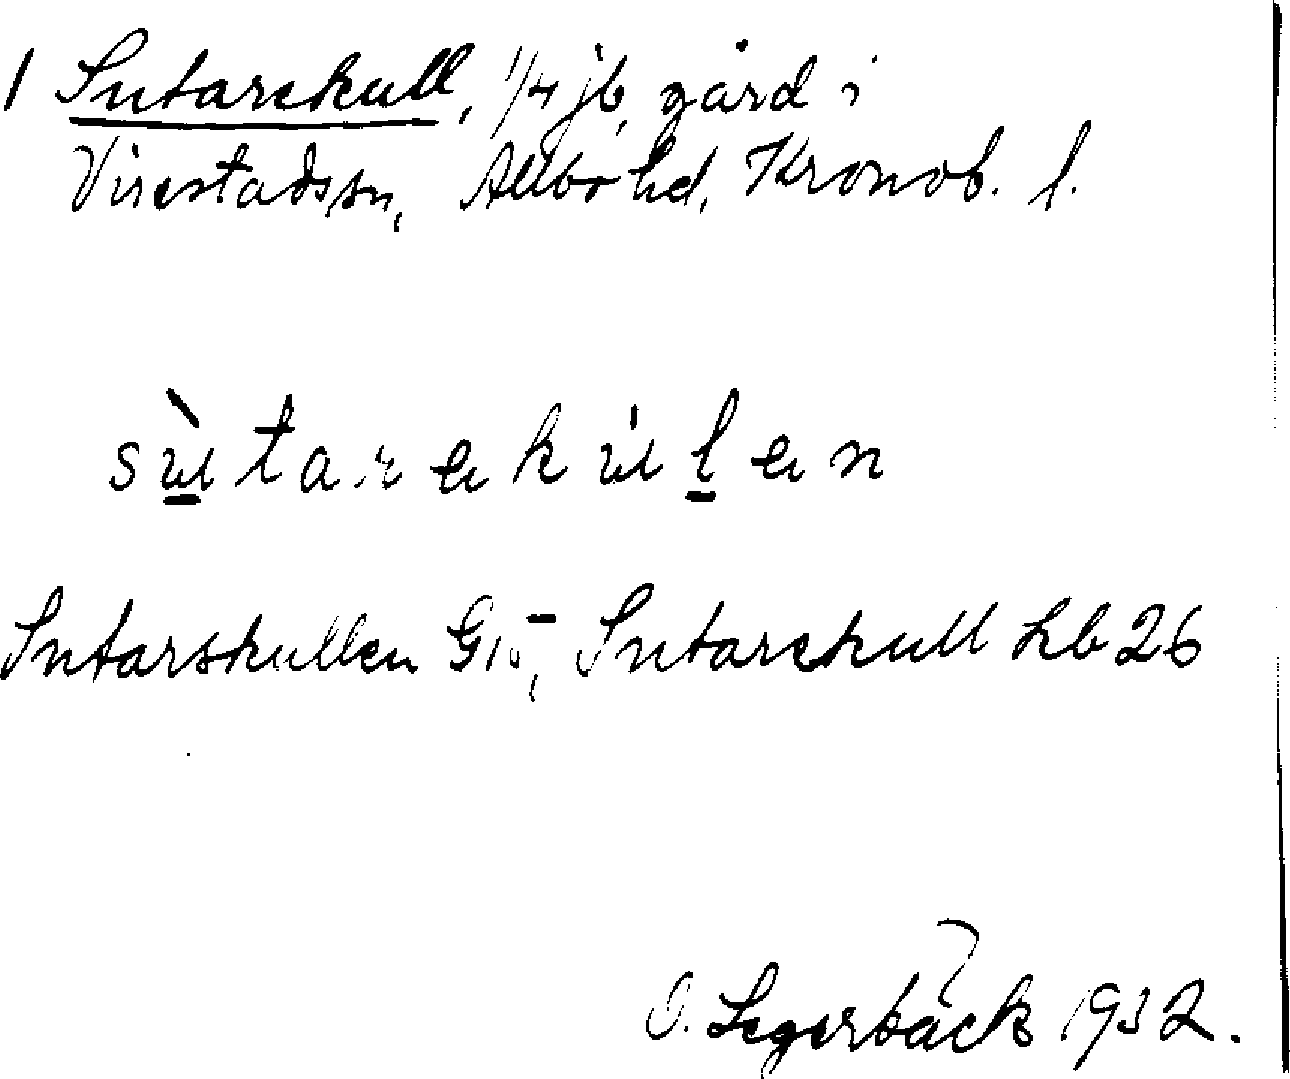 1 Sutarekull, 1/4 jb, gård i
Virestads sn, Allbo hd, Kronob. l.
sùtarekúlen
Sutarskullen G15, Sutarekull Lb 26
O. Segerbäck 1932.